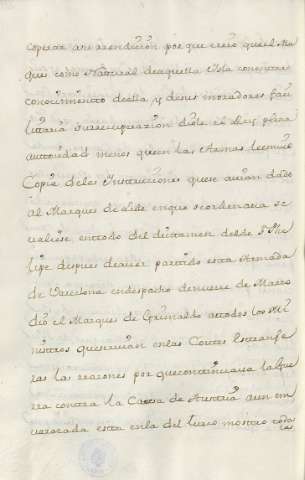 cooperar a su rendicion por que creió que el Mar
ques como Natural de aquella Isla con entero
conocimiento de ella y de sus moradores faci
litaria su recuperacion diole el Rey plena
autoridad menos que en las Armas
Copia de las Instrucciones que se avian dado
al Marques de en que se ordenaria se
valiese en todo del dictamen de
lipe despues de aver partido esta Armada
de Barcelona en despacho de nueve de Marzo
dio el Marques de Grimaldo a todos los Mi
nistros que servian en las Cortes Estranje
ras las razones por que continuava la gue
rra contra la Cassa de Austria aun em
varazada esta en la del turco mostro